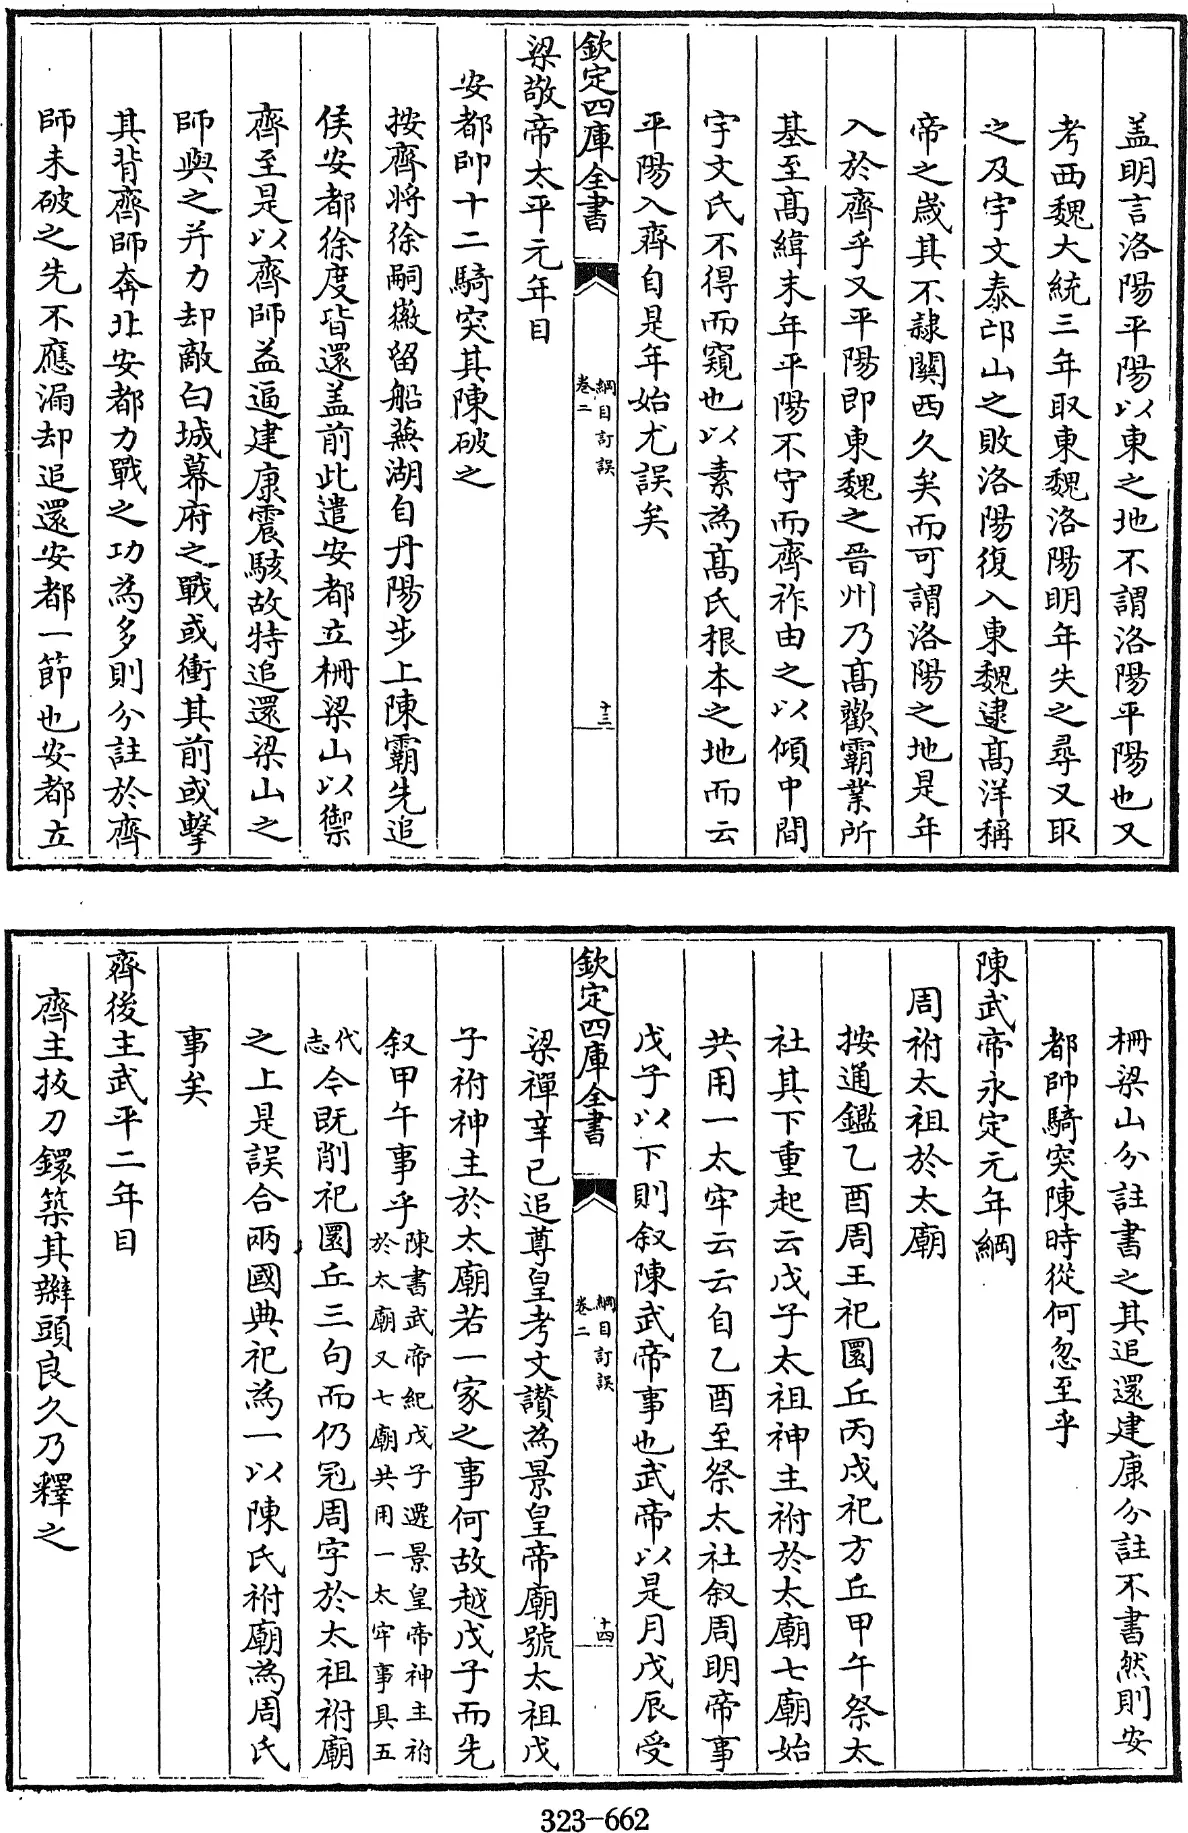 盖明言洛陽平陽以東之地不謂洛陽平陽也又
考西魏大統三年取東魏洛陽明年失之尋又取
之及宇文泰邙山之敗洛陽復入東魏逮髙洋稱
帝之歳其不隷闗西久矣而可謂洛陽之地是年
入於齊乎又平陽即東魏之晉州乃髙歡霸業所
基至髙緯末年平陽不守而齊祚由之以傾中間
宇文氏不得而窺也以素為髙氏根本之地而云
平陽入齊自是年始尤誤矣
欽定四庫全書
綱目訂誤
卷二
十三
梁敬帝太平元年目
安都帥十二騎突其陳破之
按齊將徐嗣徽留船蕪湖自丹陽步上陳霸先追
侯安都徐度皆還盖前此遣安都立柵梁山以禦
齊至是以齊師益逼建康震駭故特追還梁山之
師與之并力却敵白城幕府之戰或衝其前或擊
其背齊師奔北安都力戰之功為多則分註於齊
師未破之先不應漏却追還安都一節也安都立
柵梁山分註書之其追還建康分註不書然則安
都帥騎突陳時從何忽至乎
陳武帝永定元年綱
周祔太祖於太廟
按通鑑乙酉周王祀圜丘丙戍祀方丘甲午祭太
社其下重起云戊子太祖神主祔於太廟七廟始
共用一太牢云云自乙酉至祭太社叙周明帝事
戊子以下則叙陳武帝事也武帝以是月戊辰受
欽定四庫全書
綱目訂誤
卷二
十四
梁禪辛已追尊皇考文讃為景皇帝廟號太祖戊
子祔神主於太廟若一家之事何故越戊子而先
叙甲午事乎陳書武帝紀戊子遷景皇帝神主祔於太廟又七廟共用一太牢事具五
代志今既削祀圜丘三句而仍冠周字於太祖祔廟
之上是誤合兩國典祀為一以陳氏祔廟為周氏
事矣
齊後主武平二年目
齊主拔刀鐶築其辮頭良久乃釋之
323-662